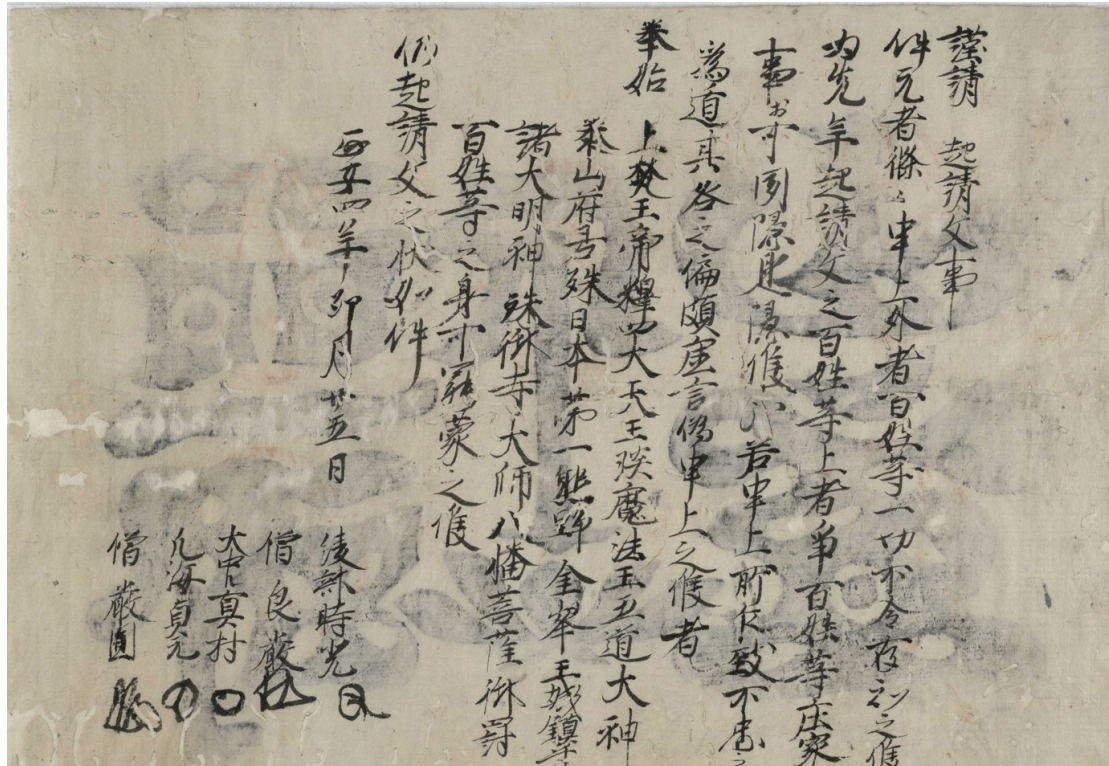 謹請 起請文事
件元者條々申上外者百姓等一切不令存知之候
為先年起請文之百姓等上者争百姓等庄家
事お可隠候哉若申上所仁致不忠之
為道具各之偏頗虚言偽申上之候者
奉始 上梵王帝釋四大天王琰魔法王五道大神
泰山府君殊日本第一熊野金峯王城鎮
諸大明神殊御寺大師八幡菩薩御罸
百姓等之身可罷蒙之候
仍起請文之状如件
正安四年卯月廿五日
綾部時光
僧良厳
大中真村
凡海貞元
僧厳圓